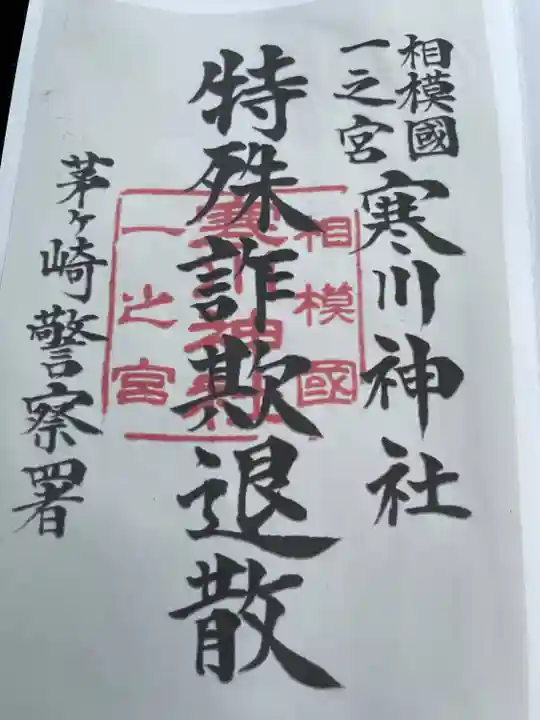 相模國
一之宮
寒川神社
特殊詐欺退散
茅ヶ崎警察署
相模國
寒川神社
一之宮